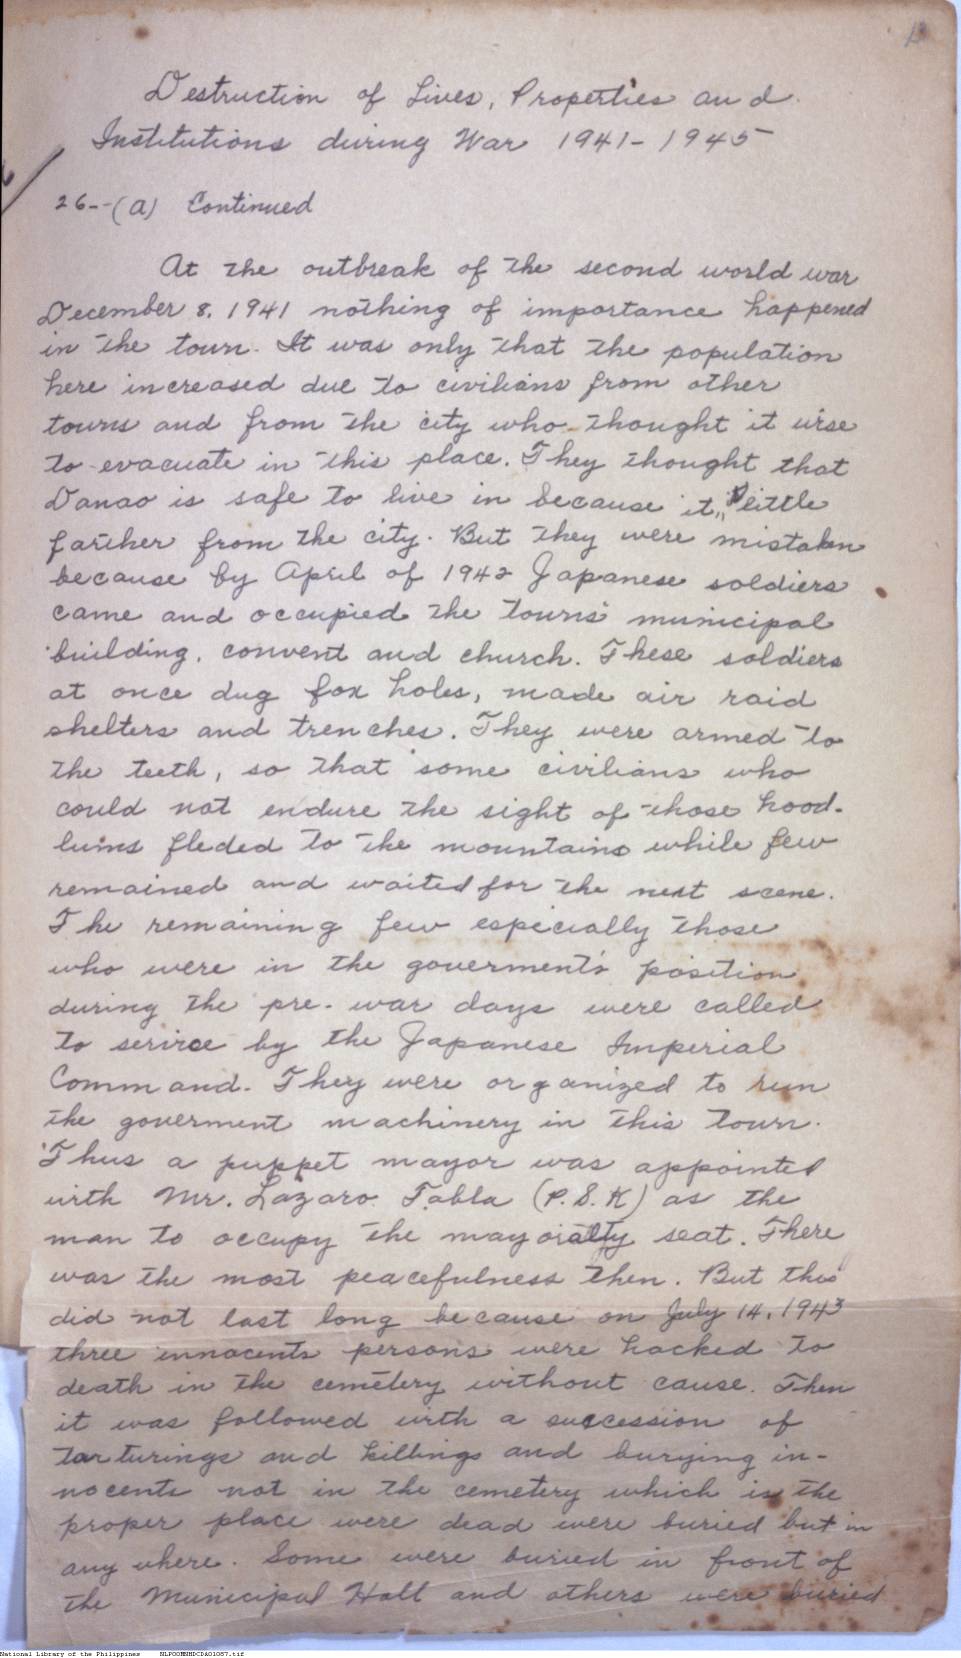 Destruction of Lives, Properties and
Institutions during War 1941-1945
26--(a) Continued
At the outbreak of the second world war
December 8, 1941 nothing of importance happened
in the town. It was only that the population
here increased due to civilians from other
towns and from the city who thought it wise
to evacuate in this place. They thought that
Danao is safe to live in because it,, little
farther from the city. But they were mistaken
because by April of 1942 Japanese soldiers
came and occupied the towns' municipal
building, convent and church. These soldiers
at once dug fox holes, made air raid
shelters and trenches. They were armed to
the teeth, so that some civilians who
could not endure the sight of those hood-
lums fleded to the mountains while few
remained and waited for the next scene.
The remaining few especially those
who were in the goverment's position
during the pre-war days were called
to serivce by the Japanese Imperial
Command. They were organized to run
the goverment machinery in this town.
Thus a puppet mayor was appointed
with Mr. Lazaro Tabla (P.S.K) as the
man to occupy the mayoralty seat. There
was the most peacefulness then. But this
did not last long because on July 14, 1943
three innocents persons were hacked to
death in the cemetery without cause. Then
it was followed with a succession of
tarturings and killings and burying in-
nocents not in the cemetery which is the
proper place were dead were buried but in
any where. Some were buried in front of
the Municipal Hall and others were buried
National Library of the Philippines NLPOOMNHDCDA01087.tif